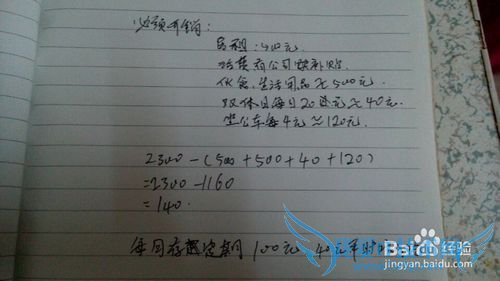 必须开销:
房租:500元
话费有公司补贴
伙食、生活用品≈500元
双休日每日20 ≈40元
坐公车每4元≈120元
2300-(500+500+40+120)
=2300-1160
=140.
每月存定期100元 40元
Baidu经验
jingyan.baidu.com